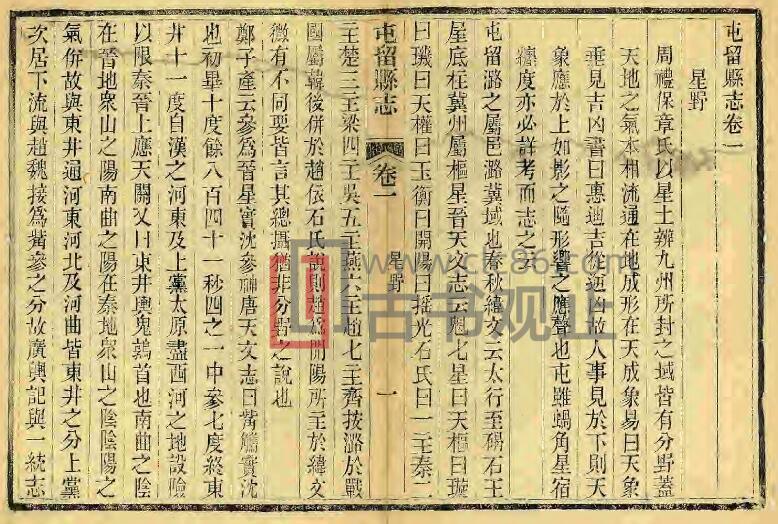 屯留縣志卷一
星野
周禮保章氏以星土辨九州所封之域皆有分野蓋
天地之氣本相流通在地成形在天成象易曰天象
垂見吉凶書曰惠迪吉從逆凶故人事見於下則天
象應於上如影之隨形響之應聲也屯雖蝸角星宿
纏度亦必詳考而志之云
屯留潞之屬邑潞冀域也春秋緯文云太行至碣石王
屋底柱冀州屬樞星晉天文志云魁七星曰天樞曰璇
曰璣曰天權曰玉衡曰開陽曰搖光石氏曰一主秦二
屯留縣志
卷一
星野
一
主楚三主梁四主吳五主燕六主趙七主齊按潞於戰
國屬韓後併於趙依石氏說則趙為開陽所主於緯文
微有不同要皆言其總攝猶非分野之說也
鄭子產云參為晉星實沈參神唐天文志曰觜觿實沈
也初畢十度餘八百四十一秒四之一中參七度終東
井十一度自漢之河東及上黨太原盡西河之地設險
以限秦晉上應天關又曰東井輿鬼鶉首也南曲之陰
在晉地眾山之陽南曲之陽在秦地眾山之陰陰陽之
氣併故與東井通河東河北及河曲皆東井之分上黨
次居下流與趙魏接為觜參之分故廣輿記與一統志
www.cn86.com
古书观止